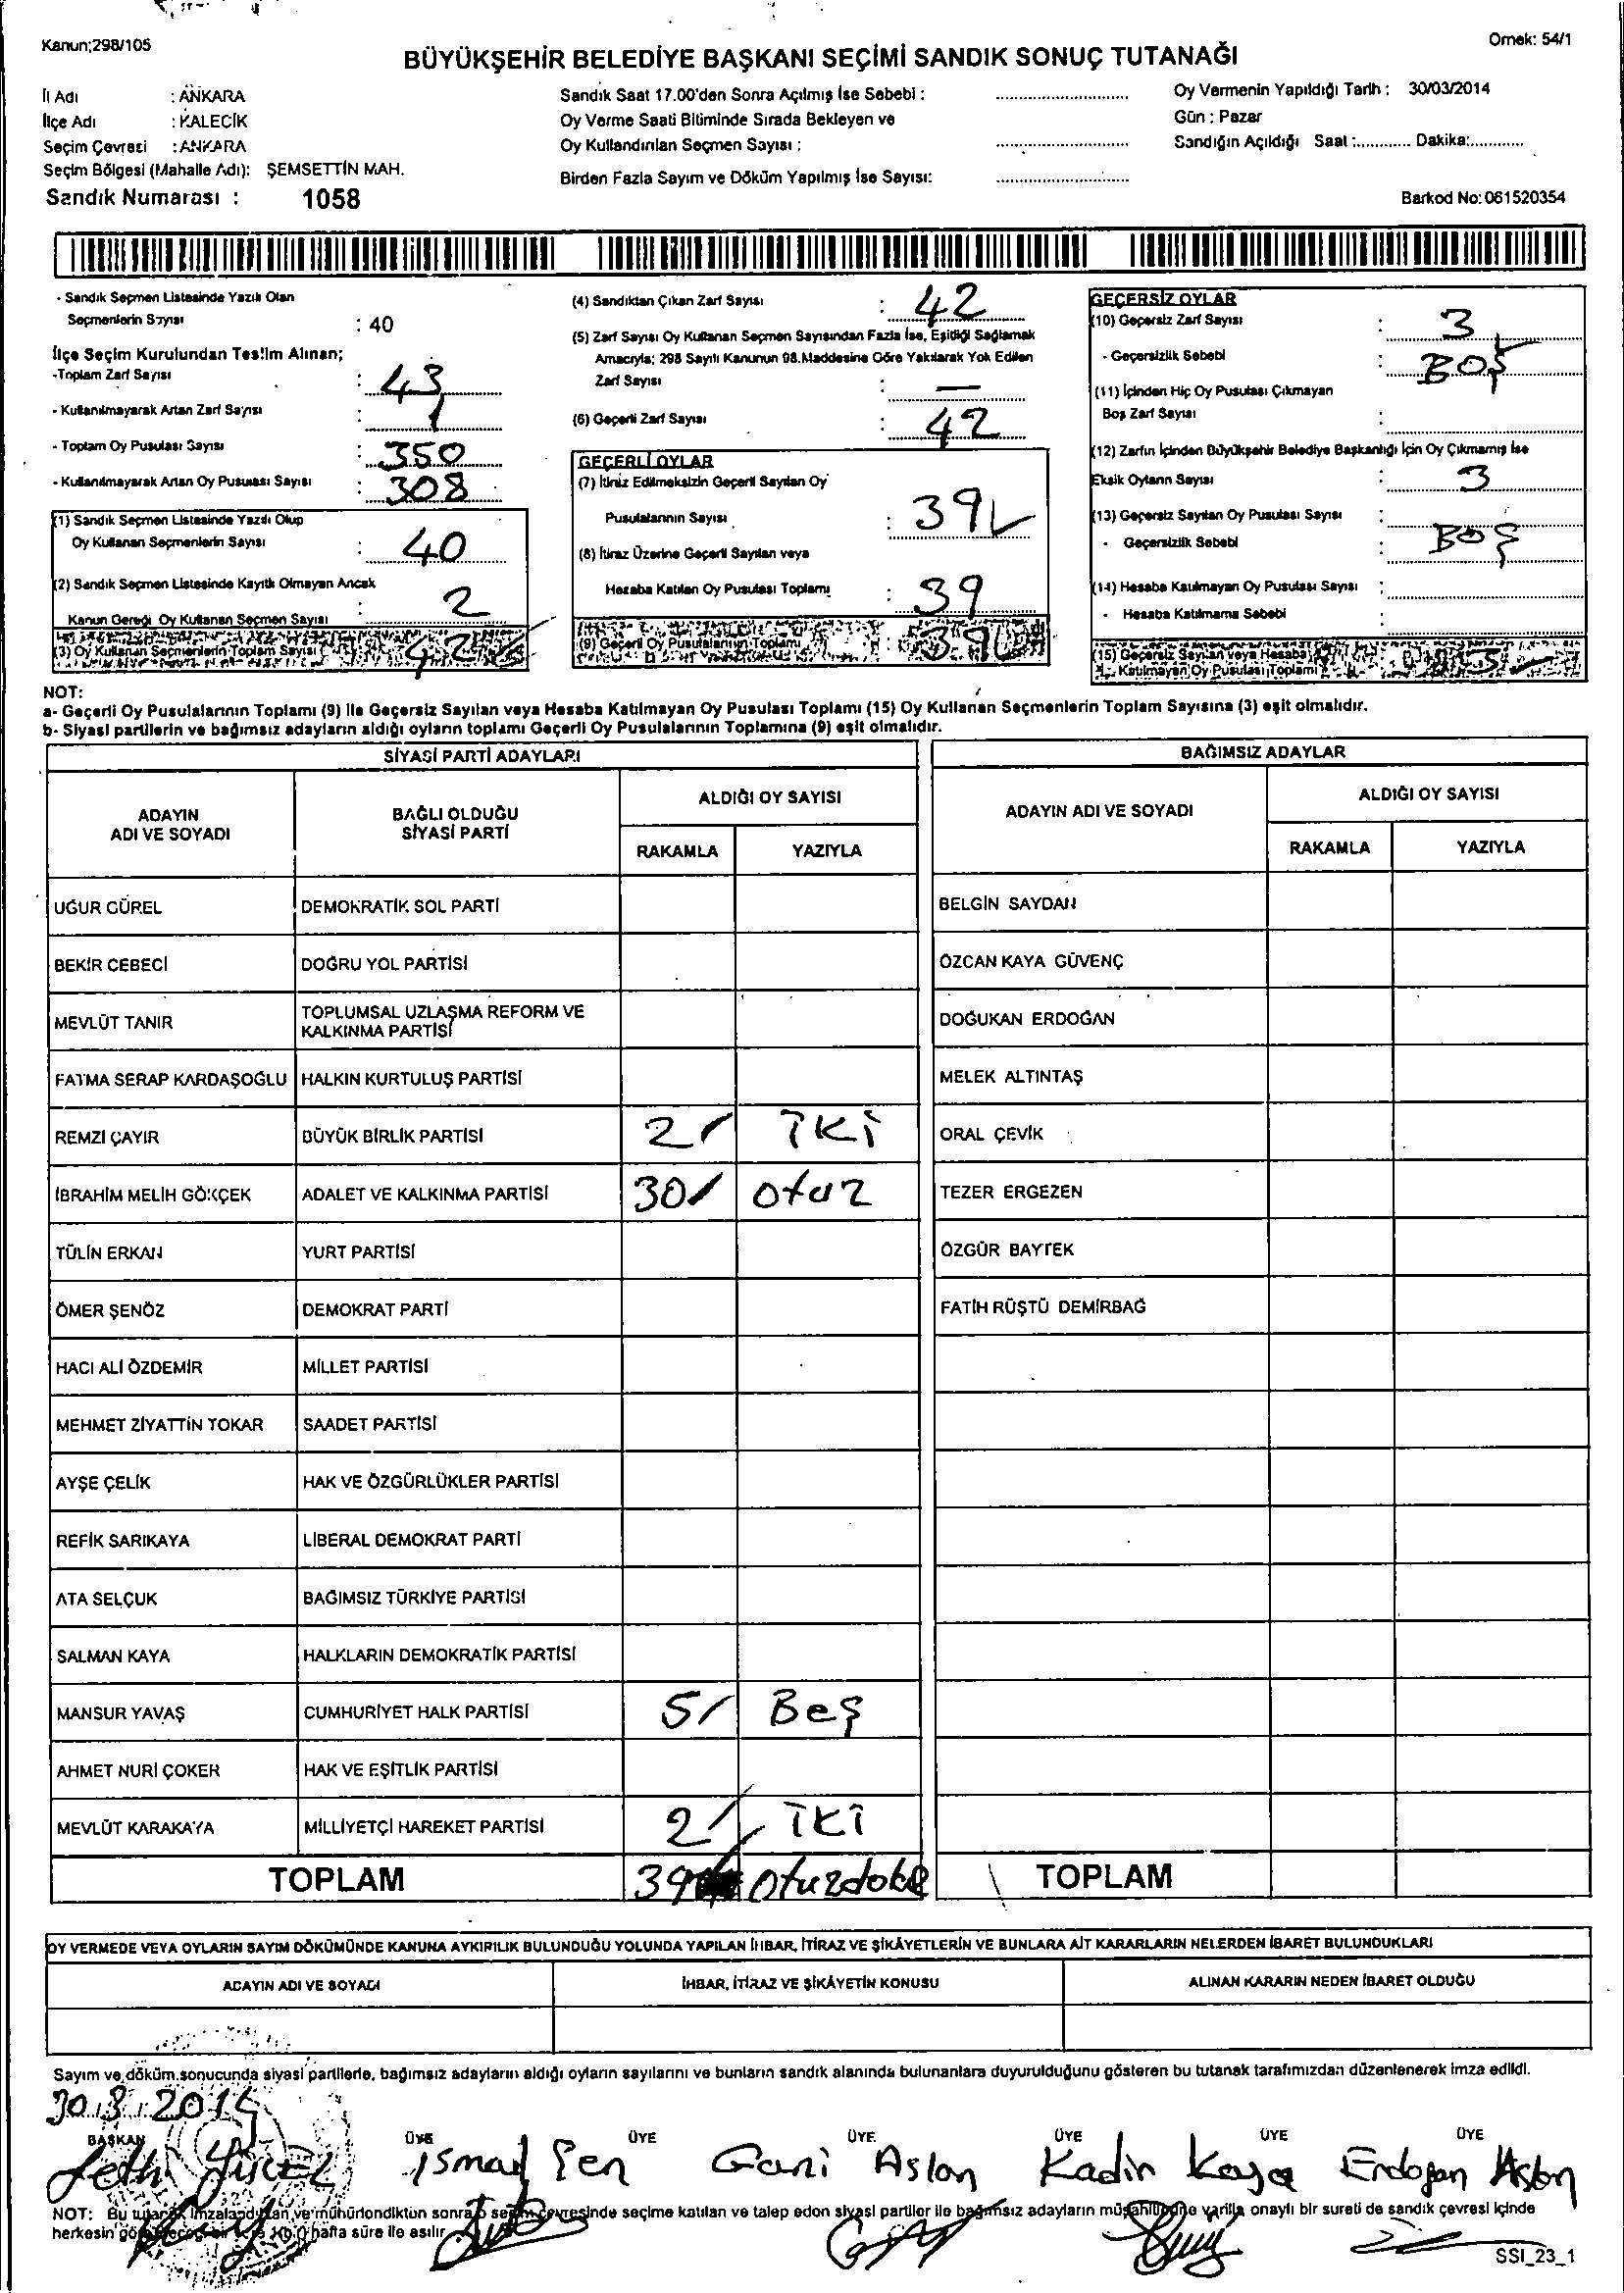 Kanun;298/105
Örnek: 54/1
BÜYÜKŞEHİR BELEDİYE BAŞKANI SEÇİMİ SANDIK SONUÇ TUTANAĞI
İl Adı : ANKARA
İlçe Adı : KALECİK
Seçim Çevresi : ANKARA
Seçim Bölgesi (Mahalle Adı): ŞEMSETTİN MAH.
Sandık Numarası : 1058
Sandık Saat 17.00'den Sonra Açılmış İse Sebebi :
Oy Verme Saati Bitiminde Sırada Bekleyen ve
Oy Kullandırılan Seçmen Sayısı :
Birden Fazla Sayım ve Döküm Yapılmış İse Sayısı:
Oy Vermenin Yapıldığı Tarih : 30/03/2014
Gün : Pazar
Sandığın Açıldığı Saat :............ Dakika:............
Barkod No: 061520354
- Sandık Seçmen Listesinde Yazılı Olan
Seçmenlerin Sayısı : 40
İlçe Seçim Kurulundan Teslim Alınan;
-Toplam Zarf Sayısı : 43
- Kullanılmayarak Artan Zarf Sayısı : 1
- Toplam Oy Pusulası Sayısı : 350
- Kullanılmayarak Artan Oy Pusulası Sayısı : 308
(1) Sandık Seçmen Listesinde Yazılı Olup
Oy Kullanan Seçmenlerin Sayısı : 40
(2) Sandık Seçmen Listesinde Kayıtlı Olmayan Ancak
Kanun Gereği Oy Kullanan Seçmen Sayısı : 2
(3) Oy Kullanan Seçmenlerin Toplam Sayısı : 42
(4) Sandıktan Çıkan Zarf Sayısı : 42
(5) Zarf Sayısı Oy Kullanan Seçmen Sayısından Fazla İse, Eşitliği Sağlamak
Amacıyla; 298 Sayılı Kanunun 98.Maddesine Göre Yakılarak Yok Edilen
Zarf Sayısı : —
(6) Geçerli Zarf Sayısı : 42
GEÇERLİ OYLAR
(7) İtiraz Edilmeksizin Geçerli Sayılan Oy
Pusulalarının Sayısı : 39
(8) İtiraz Üzerine Geçerli Sayılan veya
Hesaba Katılan Oy Pusulası Toplamı : 39
(9) Geçerli Oy Pusulalarının Toplamı : 39
GEÇERSİZ OYLAR
(10) Geçersiz Zarf Sayısı : 3
- Geçersizlik Sebebi : BOŞ
(11) İçinden Hiç Oy Pusulası Çıkmayan
Boş Zarf Sayısı :
(12) Zarfın İçinden Büyükşehir Belediye Başkanlığı İçin Oy Çıkmamış İse
Eksik Oyların Sayısı : 3
(13) Geçersiz Sayılan Oy Pusulası Sayısı :
- Geçersizlik Sebebi : BOŞ
(14) Hesaba Katılmayan Oy Pusulası Sayısı :
- Hesaba Katılmama Sebebi :
(15) Geçersiz Sayılan veya Hesaba
Katılmayan Oy Pusulası Toplamı : 3
NOT:
a- Geçerli Oy Pusulalarının Toplamı (9) İle Geçersiz Sayılan veya Hesaba Katılmayan Oy Pusulası Toplamı (15) Oy Kullanan Seçmenlerin Toplam Sayısına (3) eşit olmalıdır.
b- Siyasi partilerin ve bağımsız adayların aldığı oyların toplamı Geçerli Oy Pusulalarının Toplamına (9) eşit olmalıdır.
SİYASİ PARTİ ADAYLARI
ADAYIN ADI VE SOYADI
BAĞLI OLDUĞU SİYASİ PARTİ
ALDIĞI OY SAYISI
RAKAMLA YAZIYLA
UĞUR GÜREL DEMOKRATİK SOL PARTİ
BEKİR CEBECİ DOĞRU YOL PARTİSİ
MEVLÜT TANIR TOPLUMSAL UZLAŞMA REFORM VE KALKINMA PARTİSİ
FATMA SERAP KARDAŞOĞLU HALKIN KURTULUŞ PARTİSİ
REMZİ ÇAYIR BÜYÜK BİRLİK PARTİSİ 2/ İKİ
İBRAHİM MELİH GÖKÇEK ADALET VE KALKINMA PARTİSİ 30/ otuz
TÜLİN ERKAN YURT PARTİSİ
ÖMER ŞENÖZ DEMOKRAT PARTİ
HACI ALİ ÖZDEMİR MİLLET PARTİSİ
MEHMET ZİYATTİN TOKAR SAADET PARTİSİ
AYŞE ÇELİK HAK VE ÖZGÜRLÜKLER PARTİSİ
REFİK SARIKAYA LİBERAL DEMOKRAT PARTİ
ATA SELÇUK BAĞIMSIZ TÜRKİYE PARTİSİ
SALMAN KAYA HALKLARIN DEMOKRATİK PARTİSİ
MANSUR YAVAŞ CUMHURİYET HALK PARTİSİ 5/ Beş
AHMET NURİ ÇOKER HAK VE EŞİTLİK PARTİSİ
MEVLÜT KARAKAYA MİLLİYETÇİ HAREKET PARTİSİ 2/ İKİ
TOPLAM 39 otuzdokuz
BAĞIMSIZ ADAYLAR
ADAYIN ADI VE SOYADI
ALDIĞI OY SAYISI
RAKAMLA YAZIYLA
BELGİN SAYDAN
ÖZCAN KAYA GÜVENÇ
DOĞUKAN ERDOĞAN
MELEK ALTINTAŞ
ORAL ÇEVİK
TEZER ERGEZEN
ÖZGÜR BAYTEK
FATİH RÜŞTÜ DEMİRBAĞ
TOPLAM
OY VERMEDE VEYA OYLARIN SAYIM DÖKÜMÜNDE KANUNA AYKIRILIK BULUNDUĞU YOLUNDA YAPILAN İHBAR, İTİRAZ VE ŞİKÂYETLERİN VE BUNLARA AİT KARARLARIN NELERDEN İBARET BULUNDUKLARI
ADAYIN ADI VE SOYADI İHBAR, İTİRAZ VE ŞİKÂYETİN KONUSU ALINAN KARARIN NEDEN İBARET OLDUĞU
Sayım ve döküm sonucunda siyasi partilerle, bağımsız adayların aldığı oyların sayılarını ve bunların sandık alanında bulunanlara duyurulduğunu gösteren bu tutanak tarafımızdan düzenlenerek imza edildi.
30.3.2014
BAŞKAN ÜYE ÜYE ÜYE ÜYE ÜYE ÜYE
İsmail Şen Gani Aslan Kadir Kaya Erdoğan Aslan
NOT: Bu tutanak imzalandıktan ve mühürlendikten sonra seçim çevresinde seçime katılan ve talep eden siyasi partiler ile bağımsız adayların müşahitlerine varılır onaylı bir sureti de sandık çevresi içinde
herkesin hafta süre ile asılır
SSI_23_1